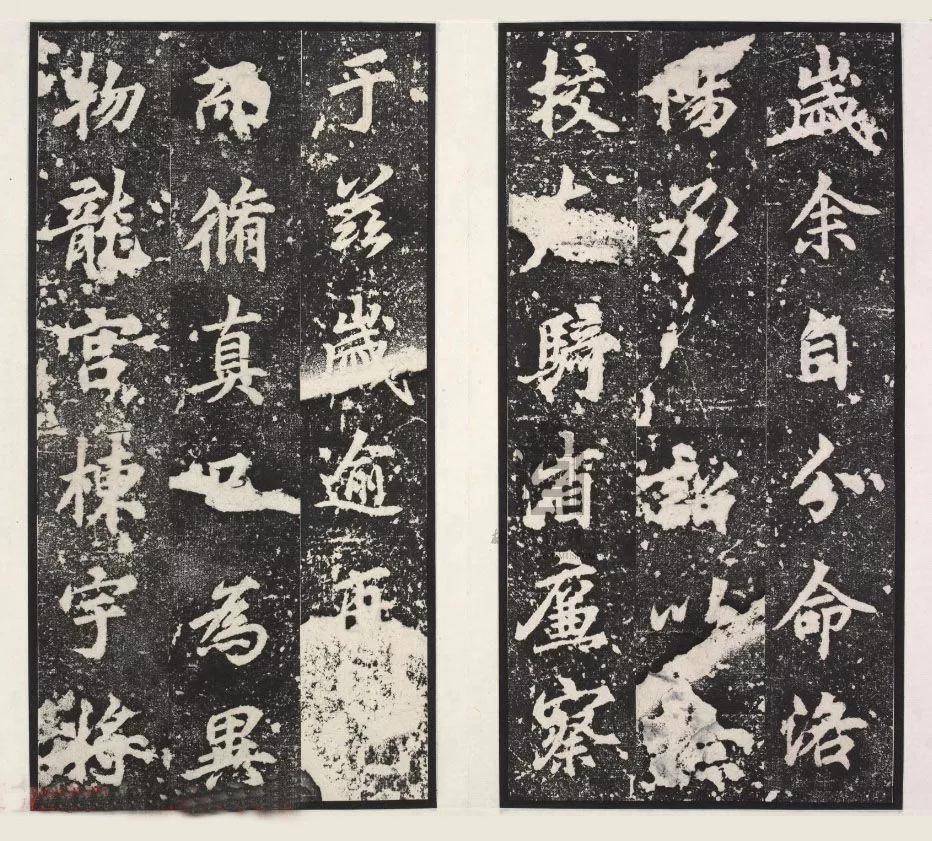 歲余自分命洛
陽承詔以
校騎省廉察
乎茲歲逾再
而脩真已為異
物龍宮棟宇將